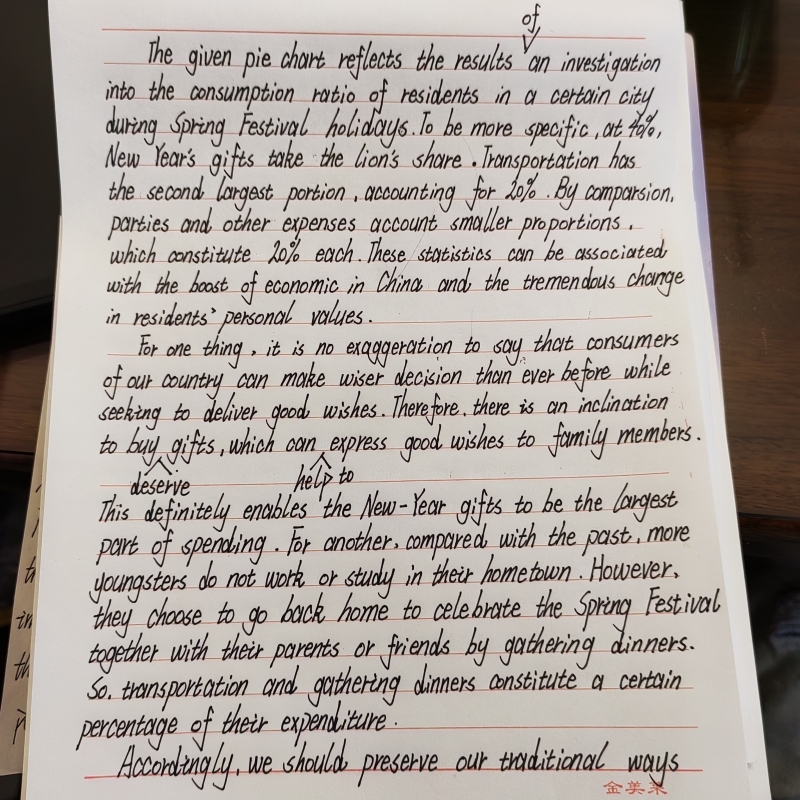 of
The given pie chart reflects the results an investigation
into the consumption ratio of residents in a certain city
during Spring Festival holidays. To be more specific, at 40%,
New Year's gifts take the lion's share. Transportation has
the second largest portion, accounting for 20%. By comparsion,
parties and other expenses account smaller proportions,
which constitute 20% each. These statistics can be associated
with the boost of economic in China and the tremendous change
in residents' personal values.
For one thing, it is no exaggeration to say that consumers
of our country can make wiser decision than ever before while
seeking to deliver good wishes. Therefore, there is an inclination
to buy gifts, which can express good wishes to family members.
deserve help to
This definitely enables the New-Year gifts to be the largest
part of spending. For another, compared with the past, more
youngsters do not work or study in their hometown. However,
they choose to go back home to celebrate the Spring Festival
together with their parents or friends by gathering dinners.
So, transportation and gathering dinners constitute a certain
percentage of their expenditure.
Accordingly, we should preserve our traditional ways
金美来